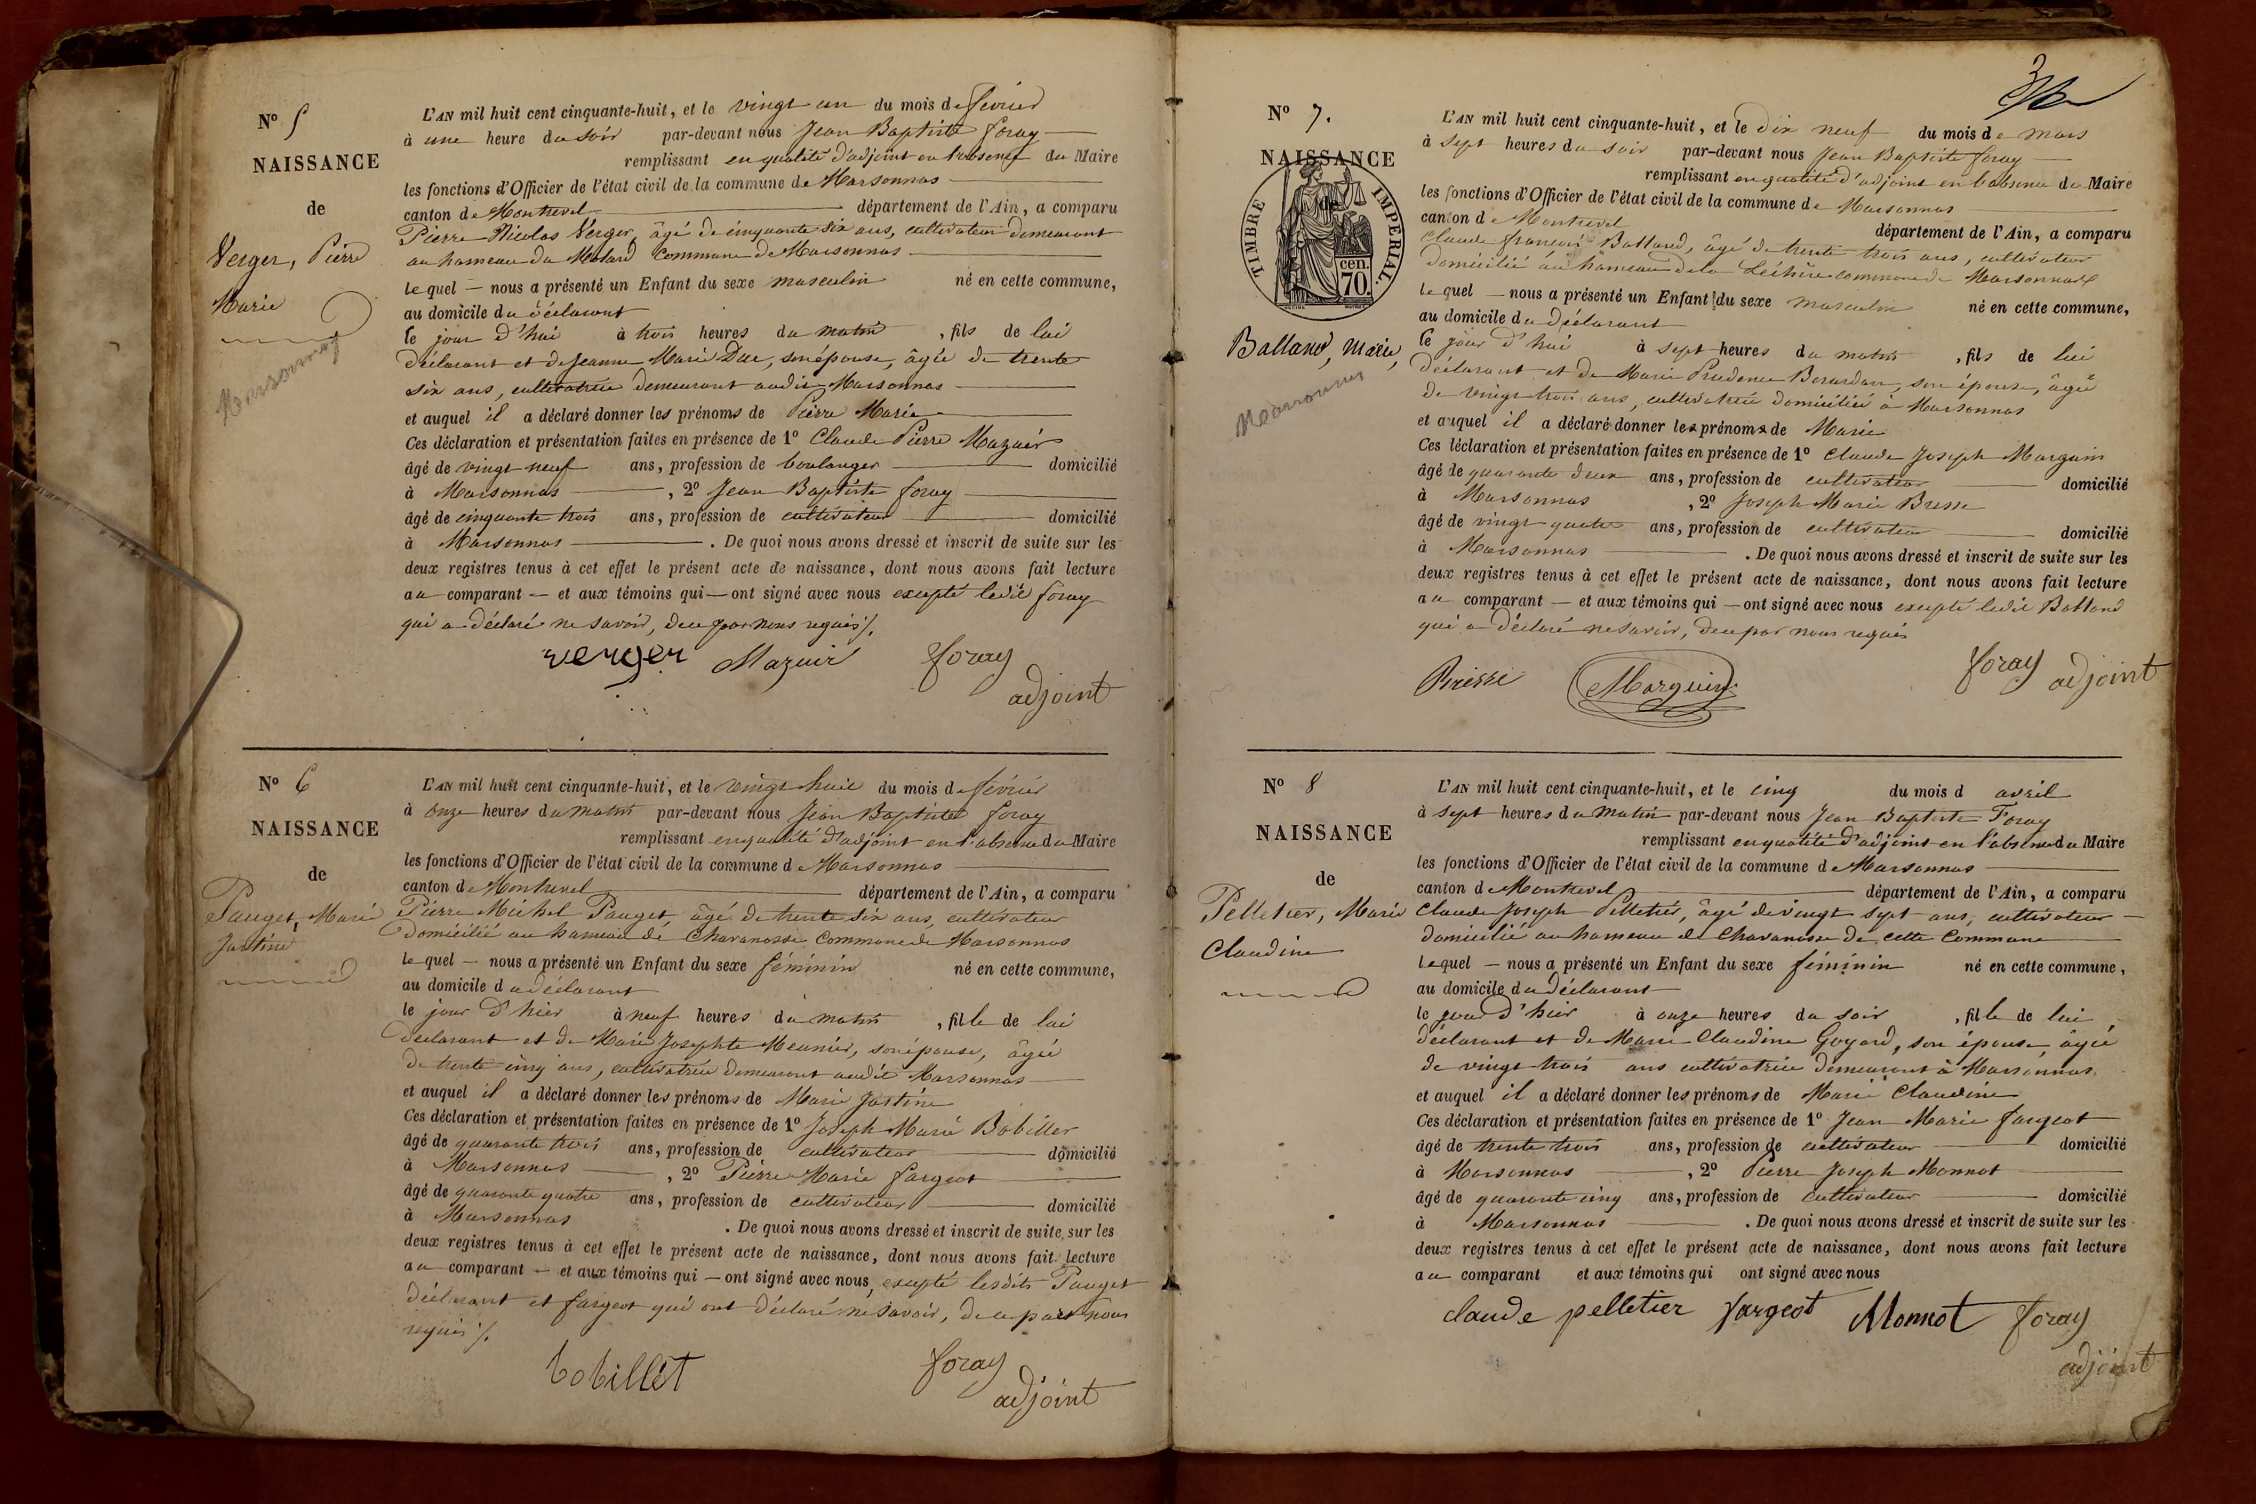 N° 5
NAISSANCE
de
Verger, Pierre
Marie
Marsonnas
L'AN mil huit cent cinquante-huit, et le vingt un du mois de février
à une heure du soir par-devant nous Jean Baptiste foray
remplissant en qualité d'adjoint en l'absence du Maire
les fonctions d'Officier de l'état civil de la commune de Marsonnas
canton de Montrevel département de l'Ain, a comparu
Pierre Nicolas Verger, âgé de cinquante six ans, cultivateur demeurant
au hameau du Molard Commune de Marsonnas
lequel — nous a présenté un Enfant du sexe masculin né en cette commune,
au domicile du déclarant
le jour d'hui à trois heures du matin, fils de lui
déclarant et de Jeanne Marie Duc, son épouse, âgée de trente
six ans, cultivatrice demeurant audit Marsonnas
et auquel il a déclaré donner les prénoms de Pierre Marie
Ces déclaration et présentation faites en présence de 1° Claude Pierre Mazuir
âgé de vingt neuf ans, profession de boulanger domicilié
à Marsonnas, 2° Jean Baptiste foray
âgé de cinquante trois ans, profession de cultivateur domicilié
à Marsonnas. De quoi nous avons dressé et inscrit de suite sur les
deux registres tenus à cet effet le présent acte de naissance, dont nous avons fait lecture
au comparant — et aux témoins qui — ont signé avec nous excepté ledit foray
qui a déclaré ne savoir, de ce par nous requis ∕.
verger Mazuir foray
adjoint
N° 6
NAISSANCE
de
Pauget, Marie
Justine
L'AN mil huit cent cinquante-huit, et le vingt huit du mois de février
à onze heures du matin par-devant nous Jean Baptiste foray
remplissant en qualité d'adjoint en l'absence du Maire
les fonctions d'Officier de l'état civil de la commune de Marsonnas
canton de Montrevel département de l'Ain, a comparu
Pierre Michel Pauget, âgé de trente six ans, cultivateur
domicilié au hameau de Chavanosse Commune de Marsonnas
lequel — nous a présenté un Enfant du sexe féminin né en cette commune,
au domicile du déclarant
le jour d'hier à neuf heures du matin, fille de lui
déclarant et de Marie Josephte Meunier, son épouse, âgée
de trente cinq ans, cultivatrice demeurant audit Marsonnas
et auquel il a déclaré donner les prénoms de Marie Justine
Ces déclaration et présentation faites en présence de 1° Joseph Marie Bobillet
âgé de quarante trois ans, profession de cultivateur domicilié
à Marsonnas, 2° Pierre Marie fargeot
âgé de quarante quatre ans, profession de cultivateur domicilié
à Marsonnas. De quoi nous avons dressé et inscrit de suite sur les
deux registres tenus à cet effet le présent acte de naissance, dont nous avons fait lecture
au comparant — et aux témoins qui — ont signé avec nous, excepté lesdits Pauget
déclarant et fargeot qui ont déclaré ne savoir, de ce par nous
requis ∕.
bobillet foray
adjoint
3
N° 7.
NAISSANCE
de
TIMBRE IMPERIAL.
70 cen.
Balland, Marie,
Marsonnas
L'AN mil huit cent cinquante-huit, et le dix neuf du mois de mars
à sept heures du soir par-devant nous Jean Baptiste foray
remplissant en qualité d'adjoint en l'absence du Maire
les fonctions d'Officier de l'état civil de la commune de Marsonnas
canton de Montrevel département de l'Ain, a comparu
Claude françois Balland, âgé de trente trois ans, cultivateur
domicilié au hameau de la Léchère commune de Marsonnas
lequel — nous a présenté un Enfant du sexe masculin né en cette commune,
au domicile du déclarant
le jour d'hui à sept heures du matin, fils de lui
déclarant et de Marie Prudence Berardan, son épouse, âgée
de vingt trois ans, cultivatrice domiciliée à Marsonnas
et auquel il a déclaré donner les prénoms de Marie
Ces déclaration et présentation faites en présence de 1° Claude Joseph Marguin
âgé de quarante deux ans, profession de cultivateur domicilié
à Marsonnas, 2° Joseph Marie Buisse
âgé de vingt quatre ans, profession de cultivateur domicilié
à Marsonnas. De quoi nous avons dressé et inscrit de suite sur les
deux registres tenus à cet effet le présent acte de naissance, dont nous avons fait lecture
au comparant — et aux témoins qui — ont signé avec nous excepté ledit Balland
qui a déclaré ne savoir, de ce par nous requis
Marguin foray adjoint
N° 8
NAISSANCE
de
Pelletier, Marie
Claudine
L'AN mil huit cent cinquante-huit, et le cinq du mois d avril
à sept heures du matin par-devant nous Jean Baptiste Foray
remplissant en qualité d'adjoint en l'absence du Maire
les fonctions d'Officier de l'état civil de la commune de Marsonnas
canton de Montrevel département de l'Ain, a comparu
Claude Joseph Pelletier, âgé de vingt sept ans, cultivateur
domicilié au hameau de Chavanosse de cette Commune
lequel — nous a présenté un Enfant du sexe féminin né en cette commune,
au domicile du déclarant
le jour d'hier à onze heures du soir, fille de lui
déclarant et de Marie Claudine Goyard, son épouse, âgée
de vingt trois ans cultivatrice demeurant à Marsonnas
et auquel il a déclaré donner les prénoms de Marie Claudine
Ces déclaration et présentation faites en présence de 1° Jean Marie fargeot
âgé de trente trois ans, profession de cultivateur domicilié
à Marsonnas, 2° Pierre Joseph Monnot
âgé de quarante cinq ans, profession de cultivateur domicilié
à Marsonnas. De quoi nous avons dressé et inscrit de suite sur les
deux registres tenus à cet effet le présent acte de naissance, dont nous avons fait lecture
au comparant et aux témoins qui ont signé avec nous
claude pelletier fargeot Monnot foray
adjoint